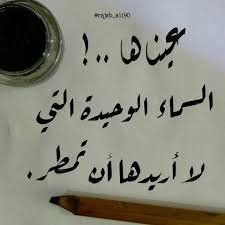 @rajab_ali90
عيناها ..!
السماء الوحيدة التي
لا أريدها أن تمطر.